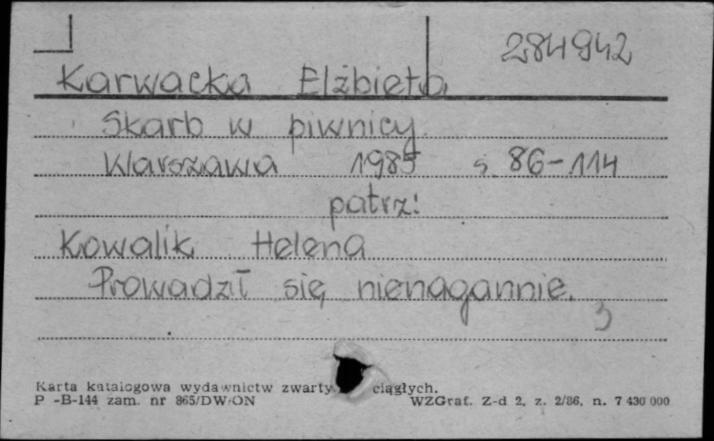 284942
Karwacka Elżbieta
Skarb w piwnicy
Warszawa 1985 s. 86-114
patrz:
Kowalik Helena
Prowadził się nienagannie.
3
Karta katalogowa wydawnictw zwarty ciągłych.
P -B-144 zam. nr 865/DW/ON WZGraf. Z-d 2, z. 2/86, n. 7 430 000